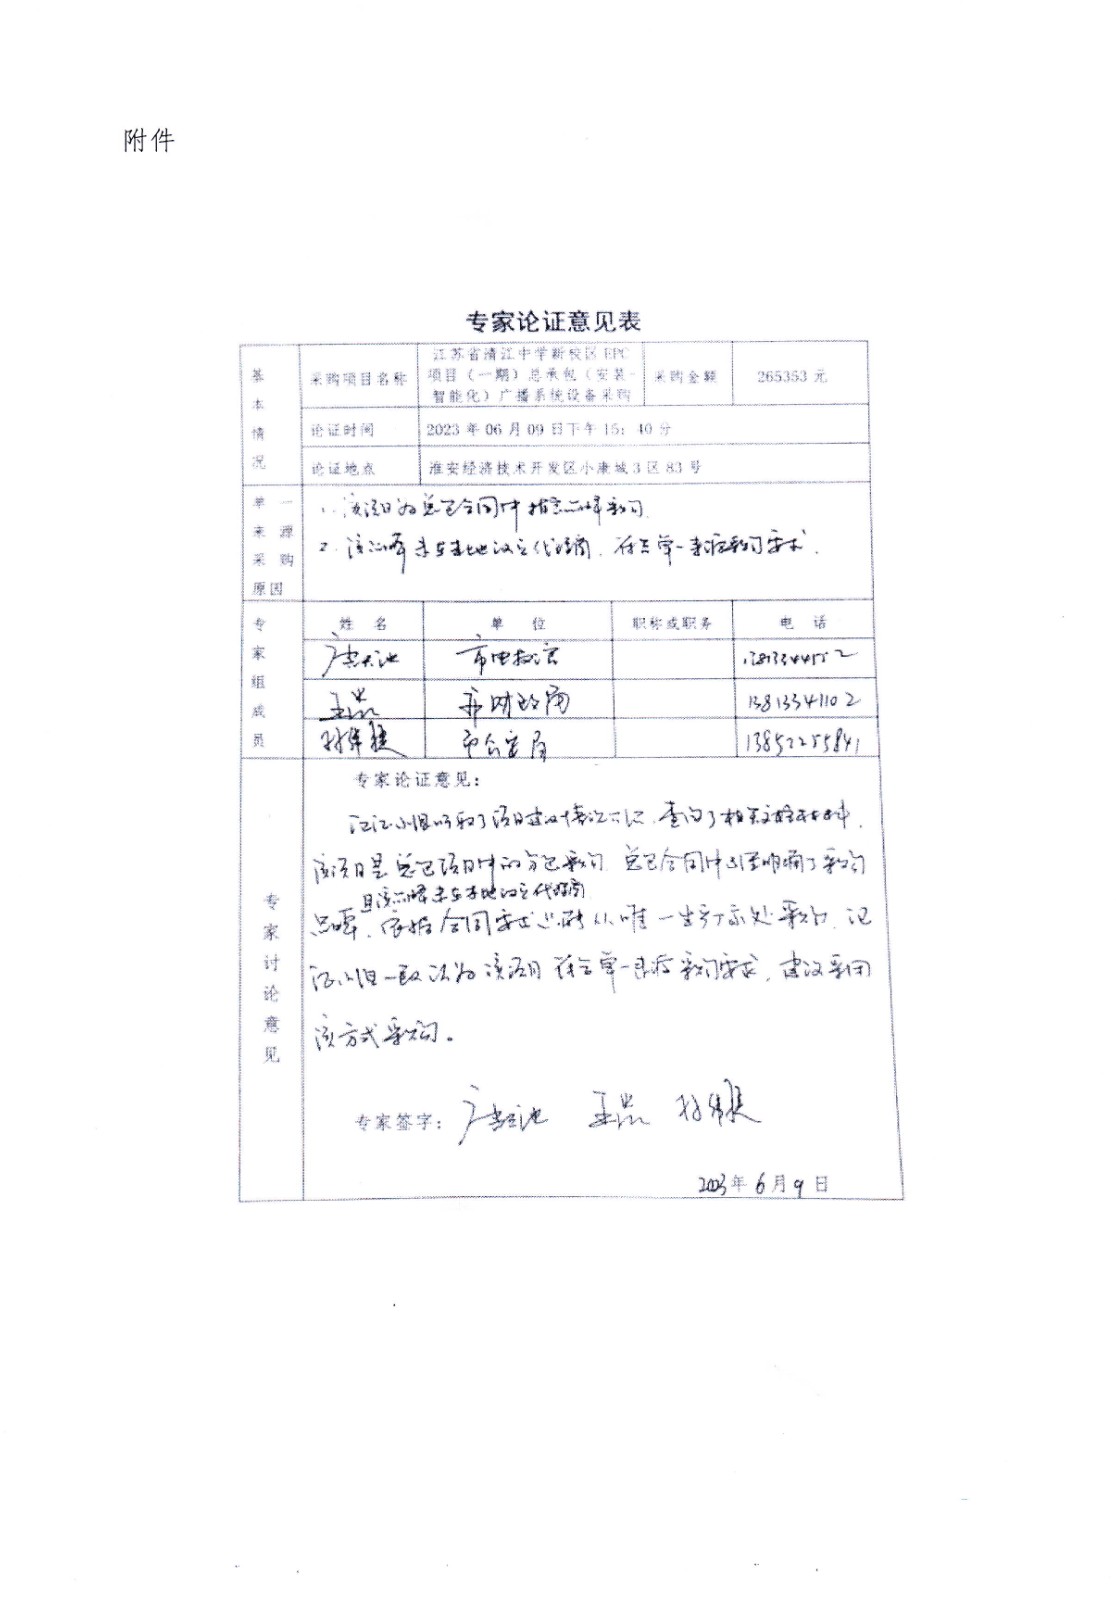 附件
专家论证意见表
基本情况
采购项目名称
江苏省清江中学新校区 EPC
项目（一期）总承包（安装-
智能化）广播系统设备采购
采购金额
265353 元
论证时间
2023 年 06 月 09 日下午 15：40 分
论证地点
淮安经济技术开发区小康城 3 区 83 号
单一来源采购原因
1. 该项目为总包合同中指定品牌采购
2. 该品牌未在本地设立代理商，符合单一来源采购要求.
专家组成员
姓 名
单 位
职称或职务
电 话
市电教
市财政局
13813341102
市公安局
13852285841
专家讨论意见
专家论证意见：
论证小组听取了项目建设情况介绍，查阅了相关文档材料，
该项目是总包项目中的分包采购，总包合同中已经明确了采购
且该品牌未在本地设立代理商
品牌，依据合同要求只能从唯一生产厂家处采购，论
证小组一致认为该项目符合单一来源采购要求，建议采用
该方式采购。
专家签字：
2023年 6 月 9 日